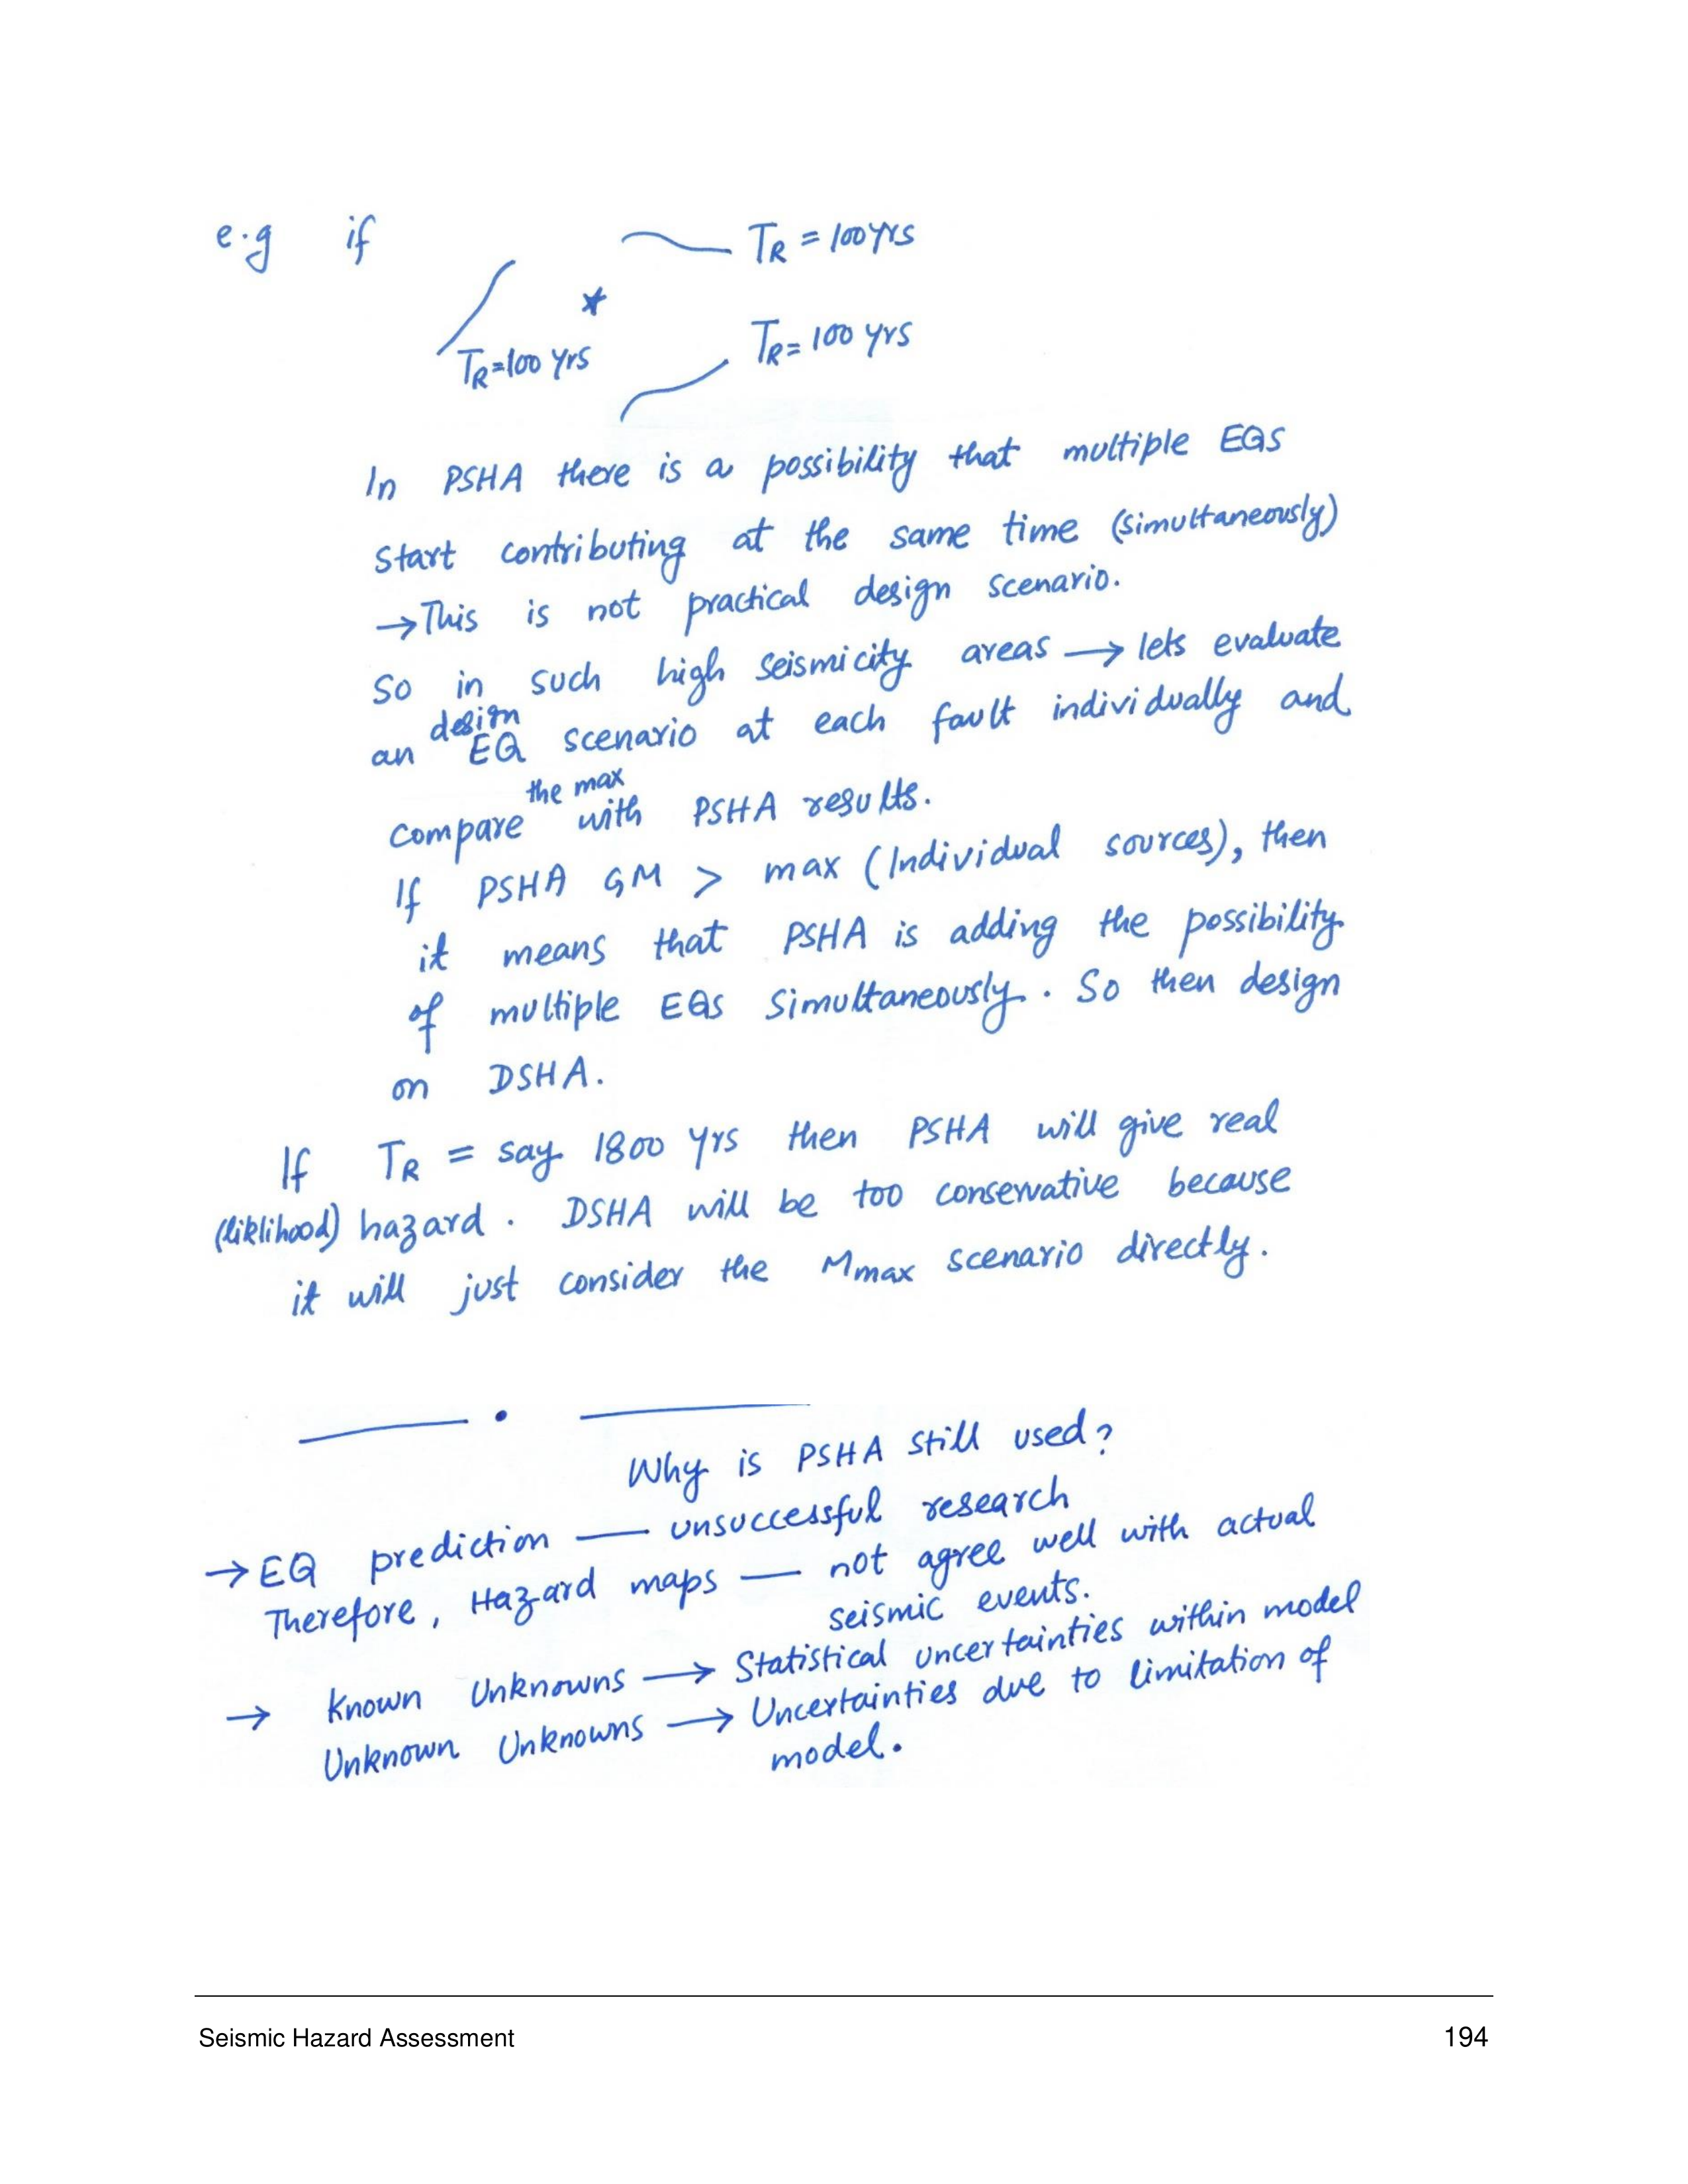 e.g if
TR = 100 yrs
TR = 100 yrs
TR = 100 yrs
In PSHA there is a possibility that multiple EQs
start contributing at the same time (simultaneously)
→ This is not practical design scenario.
So in such high seismicity areas → lets evaluate
an design EQ scenario at each fault individually and
compare the max with PSHA results.
If PSHA GM > max (Individual sources), then
it means that PSHA is adding the possibility
of multiple EQs simultaneously. So then design
on DSHA.
If TR = say 1800 yrs then PSHA will give real
(liklihood) hazard. DSHA will be too conservative because
it will just consider the Mmax scenario directly.
Why is PSHA still used?
→ EQ prediction — unsuccessful research
Therefore, Hazard maps — not agree well with actual
seismic events.
→ Known Unknowns → Statistical uncertainties within model
Unknown Unknowns → Uncertainties due to limitation of
model.
Seismic Hazard Assessment 194